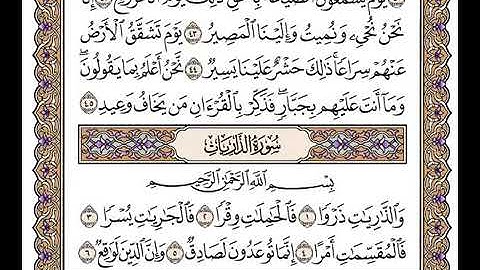 يَوْمَ يَسْمَعُونَ
نَحْنُ نُحْىِۦ وَنُمِيتُ وَإِلَيْنَا ٱلْمَصِيرُ ٤٣ يَوْمَ تَشَقَّقُ ٱلْأَرْضُ
عَنْهُمْ سِرَاعًا ۚ ذَٰلِكَ حَشْرٌ عَلَيْنَا يَسِيرٌ ٤٤ نَّحْنُ أَعْلَمُ بِمَا يَقُولُونَ ۖ
وَمَآ أَنتَ عَلَيْهِم بِجَبَّارٍ ۖ فَذَكِّرْ بِٱلْقُرْءَانِ مَن يَخَافُ وَعِيدِ ٤٥
سُورَةُ الذَّارِيَاتِ
بِسْمِ ٱللَّهِ ٱلرَّحْمَٰنِ ٱلرَّحِيمِ
وَٱلذَّٰرِيَٰتِ ذَرْوًا ١ فَٱلْحَٰمِلَٰتِ وِقْرًا ٢ فَٱلْجَٰرِيَٰتِ يُسْرًا ٣
فَٱلْمُقَسِّمَٰتِ أَمْرًا ٤ إِنَّمَا تُوعَدُونَ لَصَادِقٌ ٥ وَإِنَّ ٱلدِّينَ لَوَٰقِعٌ ٦